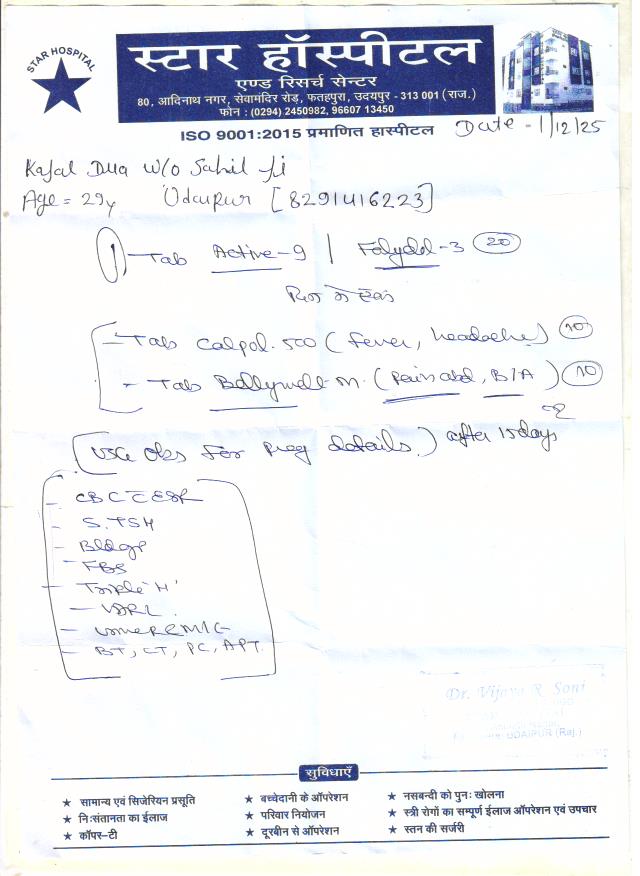 STAR HOSPITAL
स्टार हॉस्पीटल
एण्ड रिसर्च सेन्टर
80, आदिनाथ नगर, सेवामंदिर रोड़, फतहपुरा, उदयपुर - 313 001 (राज.)
फोन : (0294) 2450982, 96607 13450
ISO 9001:2015 प्रमाणित हास्पीटल
Date - 1/12/25
Kajal Dua w/o Sahil Ji
Age = 29y Udaipur [8291416223]
1) Tab Active-9 | Folydol-3 (20)
दिन में
- Tab Calpol. 500 (Fever, headache) (10)
- Tab Bellywell-M. (Pain abd, B/A) (10)
(USG Obs For Preg details.) after 15 days
- CBC C ESR
- S. TSH
- Bldgp
- FBS
- Triple 'H'
- VDRL.
- Urine R & M/C
- BT, CT, PC, APT.
Dr. Vijaya R. Soni
UDAIPUR (Raj.)
सुविधाएँ
★ सामान्य एवं सिजेरियन प्रसूति ★ बच्चेदानी के ऑपरेशन ★ नसबन्दी को पुनः खोलना
★ निःसंतानता का ईलाज ★ परिवार नियोजन ★ स्त्री रोगों का सम्पूर्ण ईलाज ऑपरेशन एवं उपचार
★ कॉपर-टी ★ दूरबीन से ऑपरेशन ★ स्तन की सर्जरी